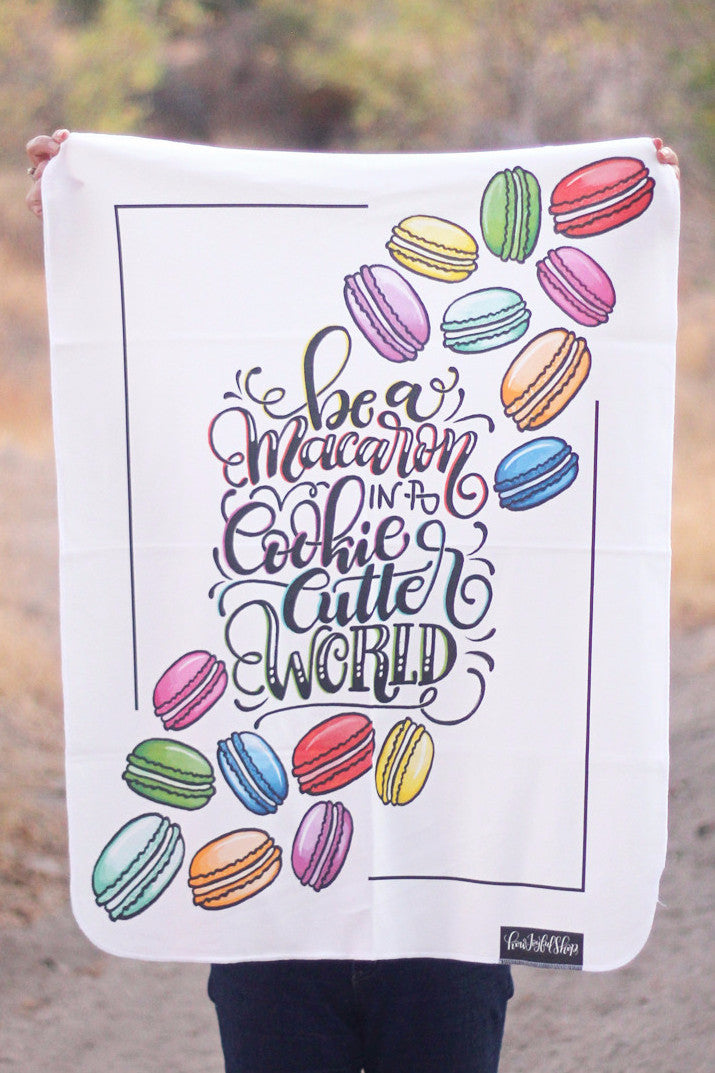 be a
Macaron
IN A
Cookie
Cutter
WORLD
howJoyfulShop